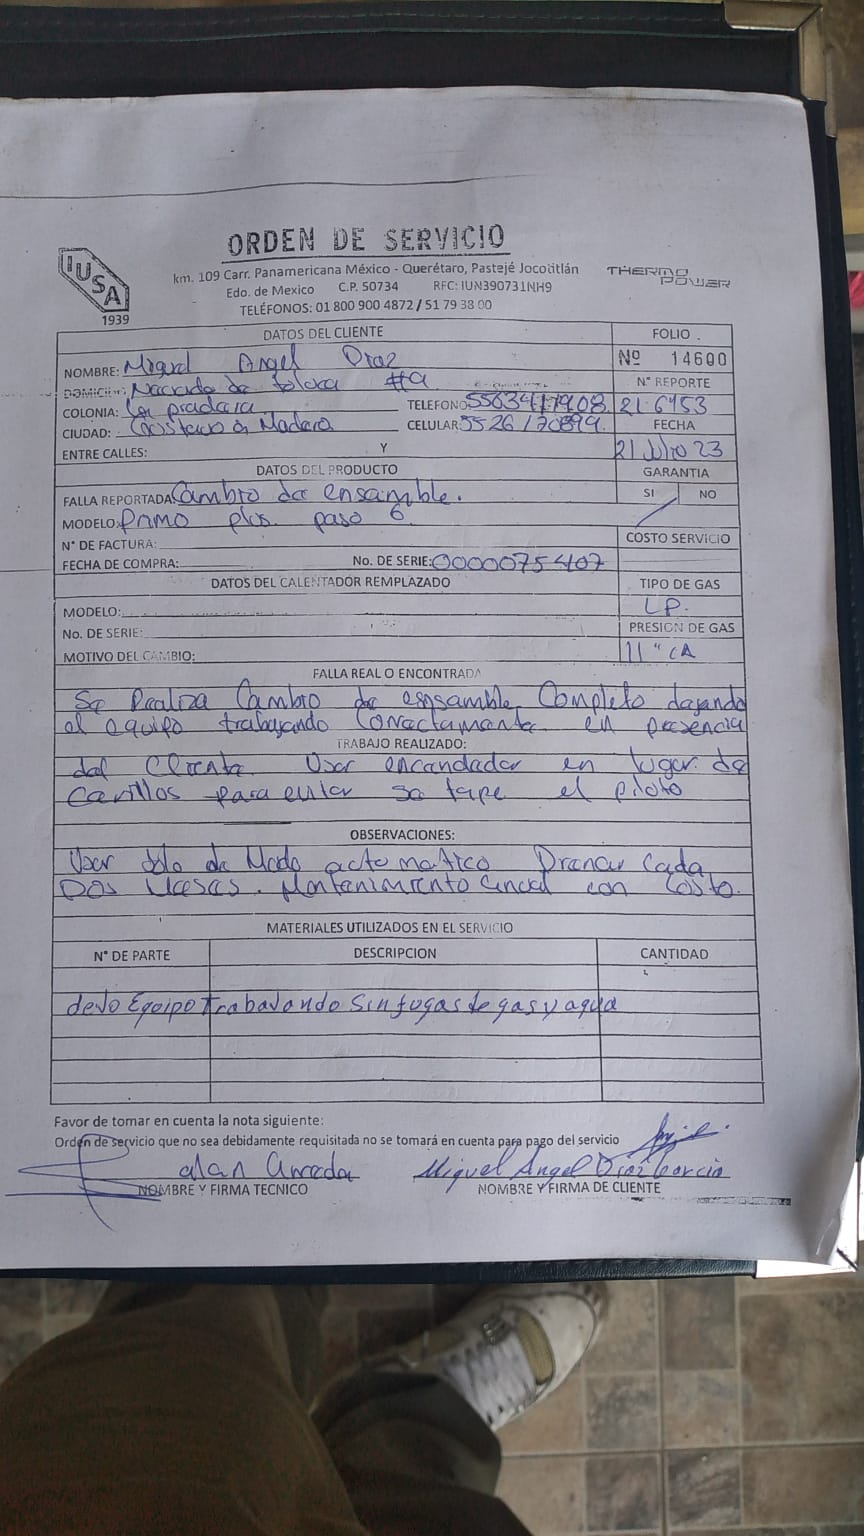 IUSA
1939
ORDEN DE SERVICIO
km. 109 Carr. Panamericana México - Querétaro, Pastejé Jocotitlán
Edo. de Mexico C.P. 50734 RFC: IUN390731NH9
TELÉFONOS: 01 800 900 4872 / 51 79 38 00
THERMO POWER
DATOS DEL CLIENTE
FOLIO
NOMBRE: Miguel Angel Diaz
Nº 14600
DOMICILIO: de toluca #9
N° REPORTE
COLONIA: la pradera TELEFONO
21 6953
CIUDAD: Gostavo a Madero CELULAR:
FECHA
ENTRE CALLES: Y
21 Julio 23
DATOS DEL PRODUCTO
GARANTIA
FALLA REPORTADA: Cambio de ensamble.
SI NO
MODELO: Primo plus paso 6
N° DE FACTURA:
COSTO SERVICIO
FECHA DE COMPRA: No. DE SERIE: 0000075407
DATOS DEL CALENTADOR REMPLAZADO
TIPO DE GAS
MODELO:
LP.
No. DE SERIE:
PRESION DE GAS
MOTIVO DEL CAMBIO:
11" CA
FALLA REAL O ENCONTRADA
Se Realiza Cambio de esnsamble Completo dejando
el equipo trabajando Correctamente en presencia
TRABAJO REALIZADO:
del Cliente. Usar encendedor en lugar de
Cerillos para evitar se tape el piloto
OBSERVACIONES:
Usar solo de Modo automatico Drenar Cada
Dos Meses. Mantenimiento anual con Costo.
MATERIALES UTILIZADOS EN EL SERVICIO
N° DE PARTE DESCRIPCION CANTIDAD
dejo Equipo Trabajando Sin fugas de gas y agua
Favor de tomar en cuenta la nota siguiente:
Orden de servicio que no sea debidamente requisitada no se tomará en cuenta para pago del servicio
alan Miguel Angel Diaz Garcia
NOMBRE Y FIRMA TECNICO NOMBRE Y FIRMA DE CLIENTE